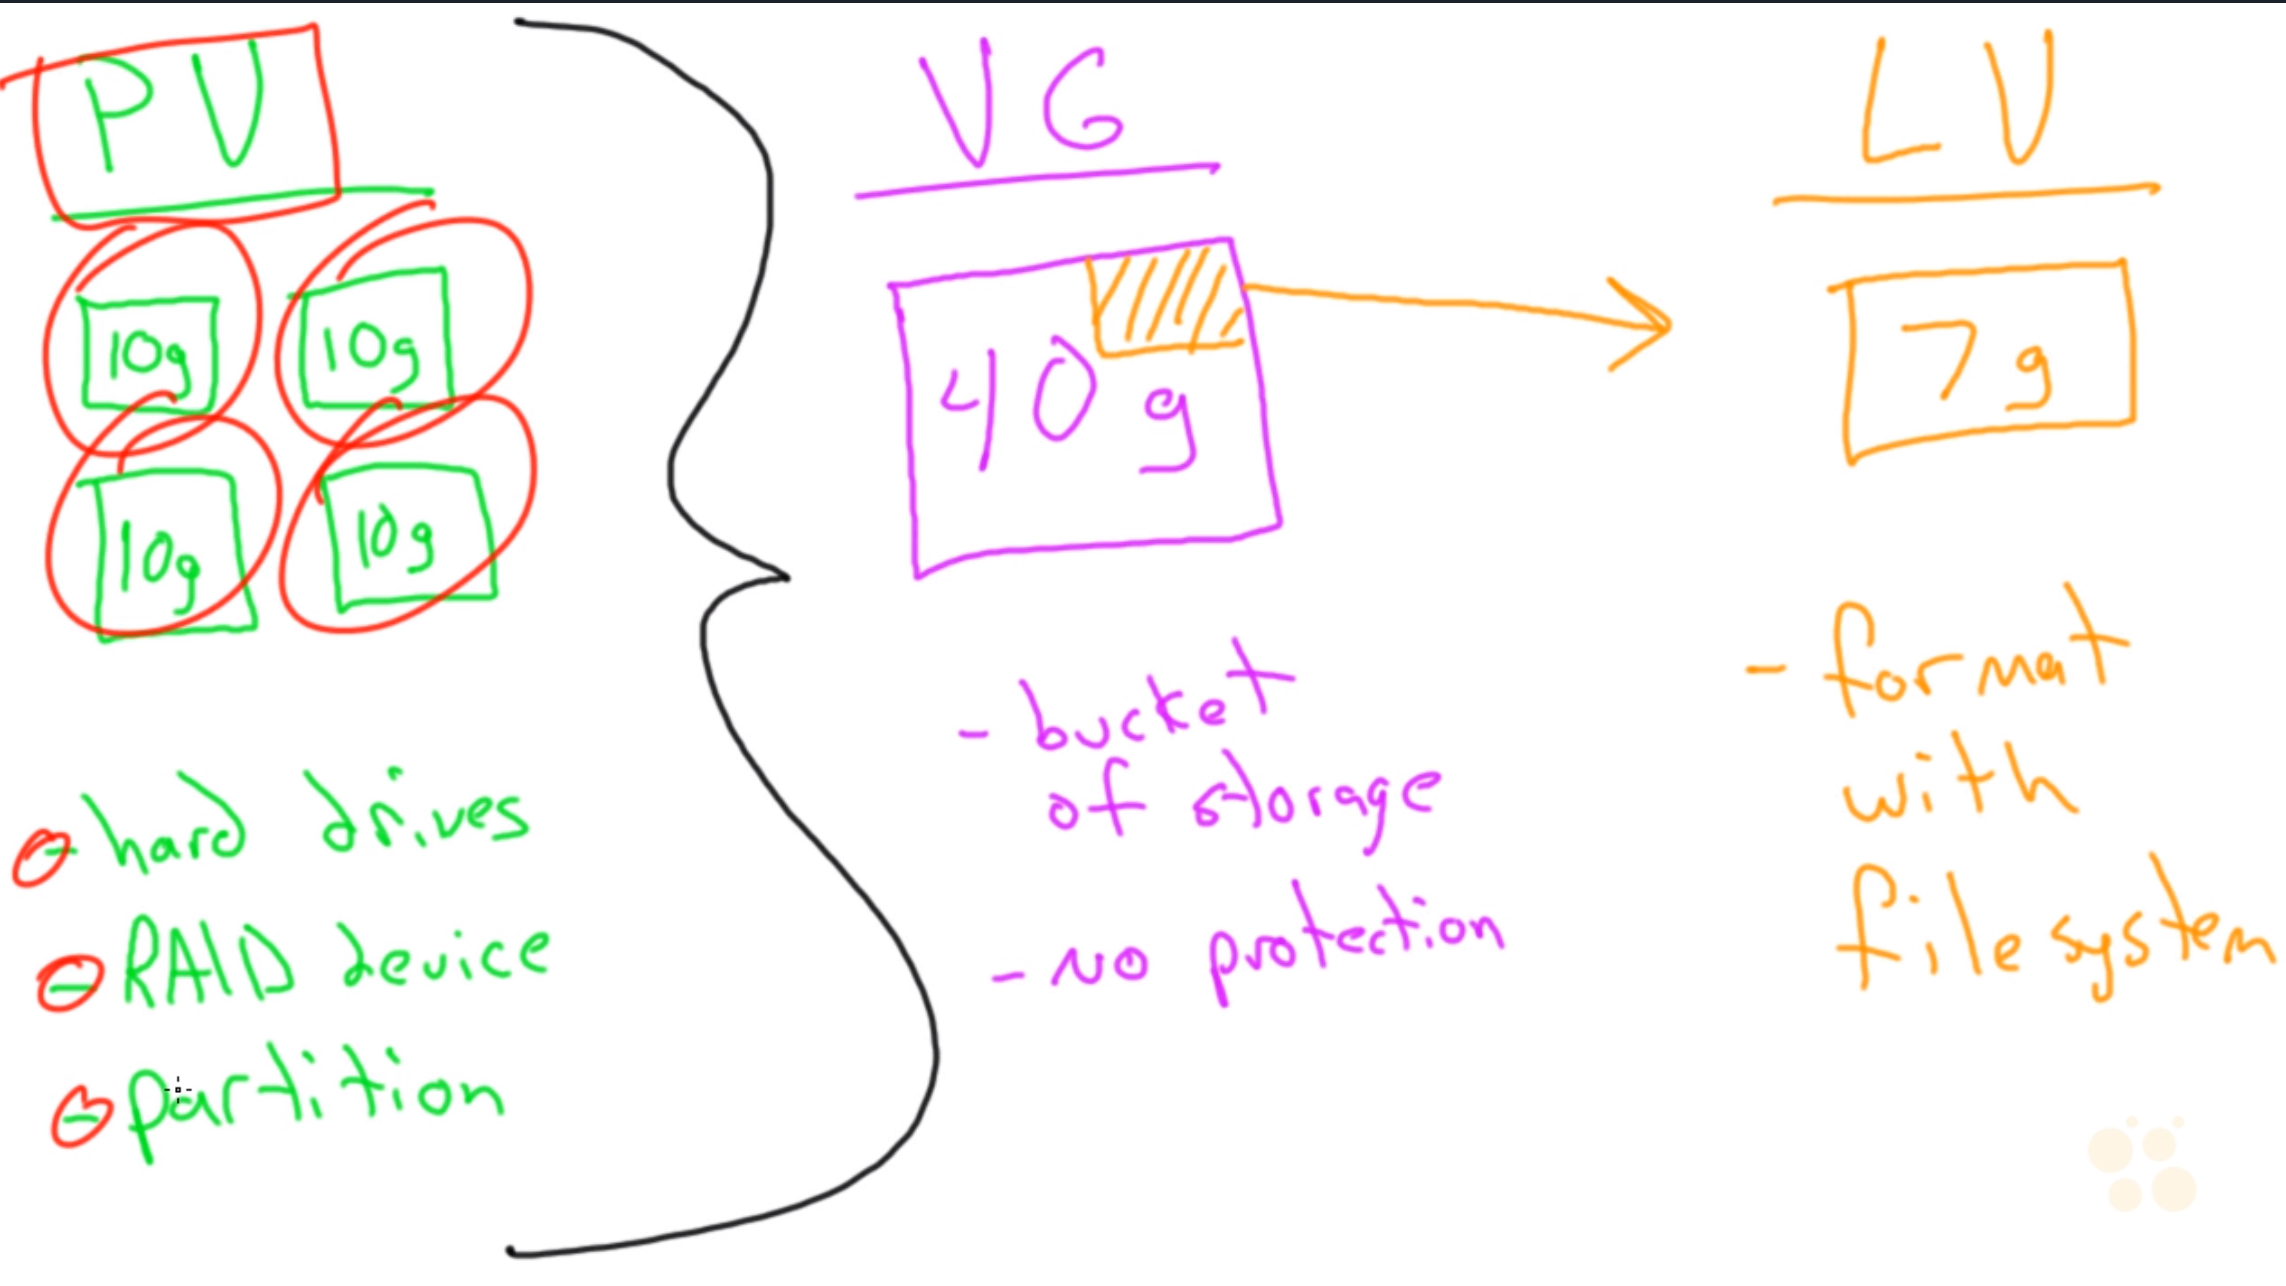 PV
10g 10g
10g 10g
- hard drives
- RAID device
- partition
VG
40g
- bucket
of storage
- no protection
LV
7g
- format
with
filesystem